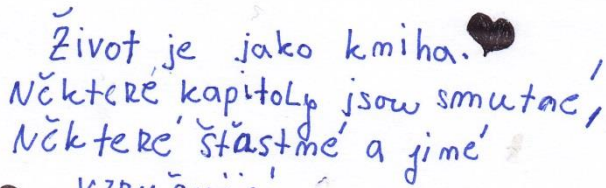 Život je jako kniha.
Některé kapitoly jsou smutné,
Některé šťastné a jiné